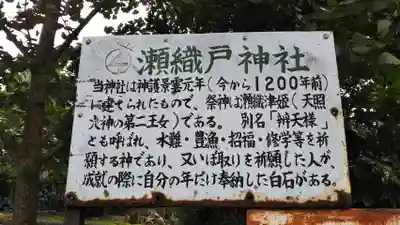 瀬織戸神社
当神社は神護景雲元年(今から1200年前)
に建てられたもので、祭神は瀬織津姫(天照
大神の第二王女)である。 別名「辨天様」
とも呼ばれ、水難・豊漁・招福・修学等を祈
願する神であり、又いぼ取りを祈願した人が、
成就の際に自分の年だけ奉納した白石がある。